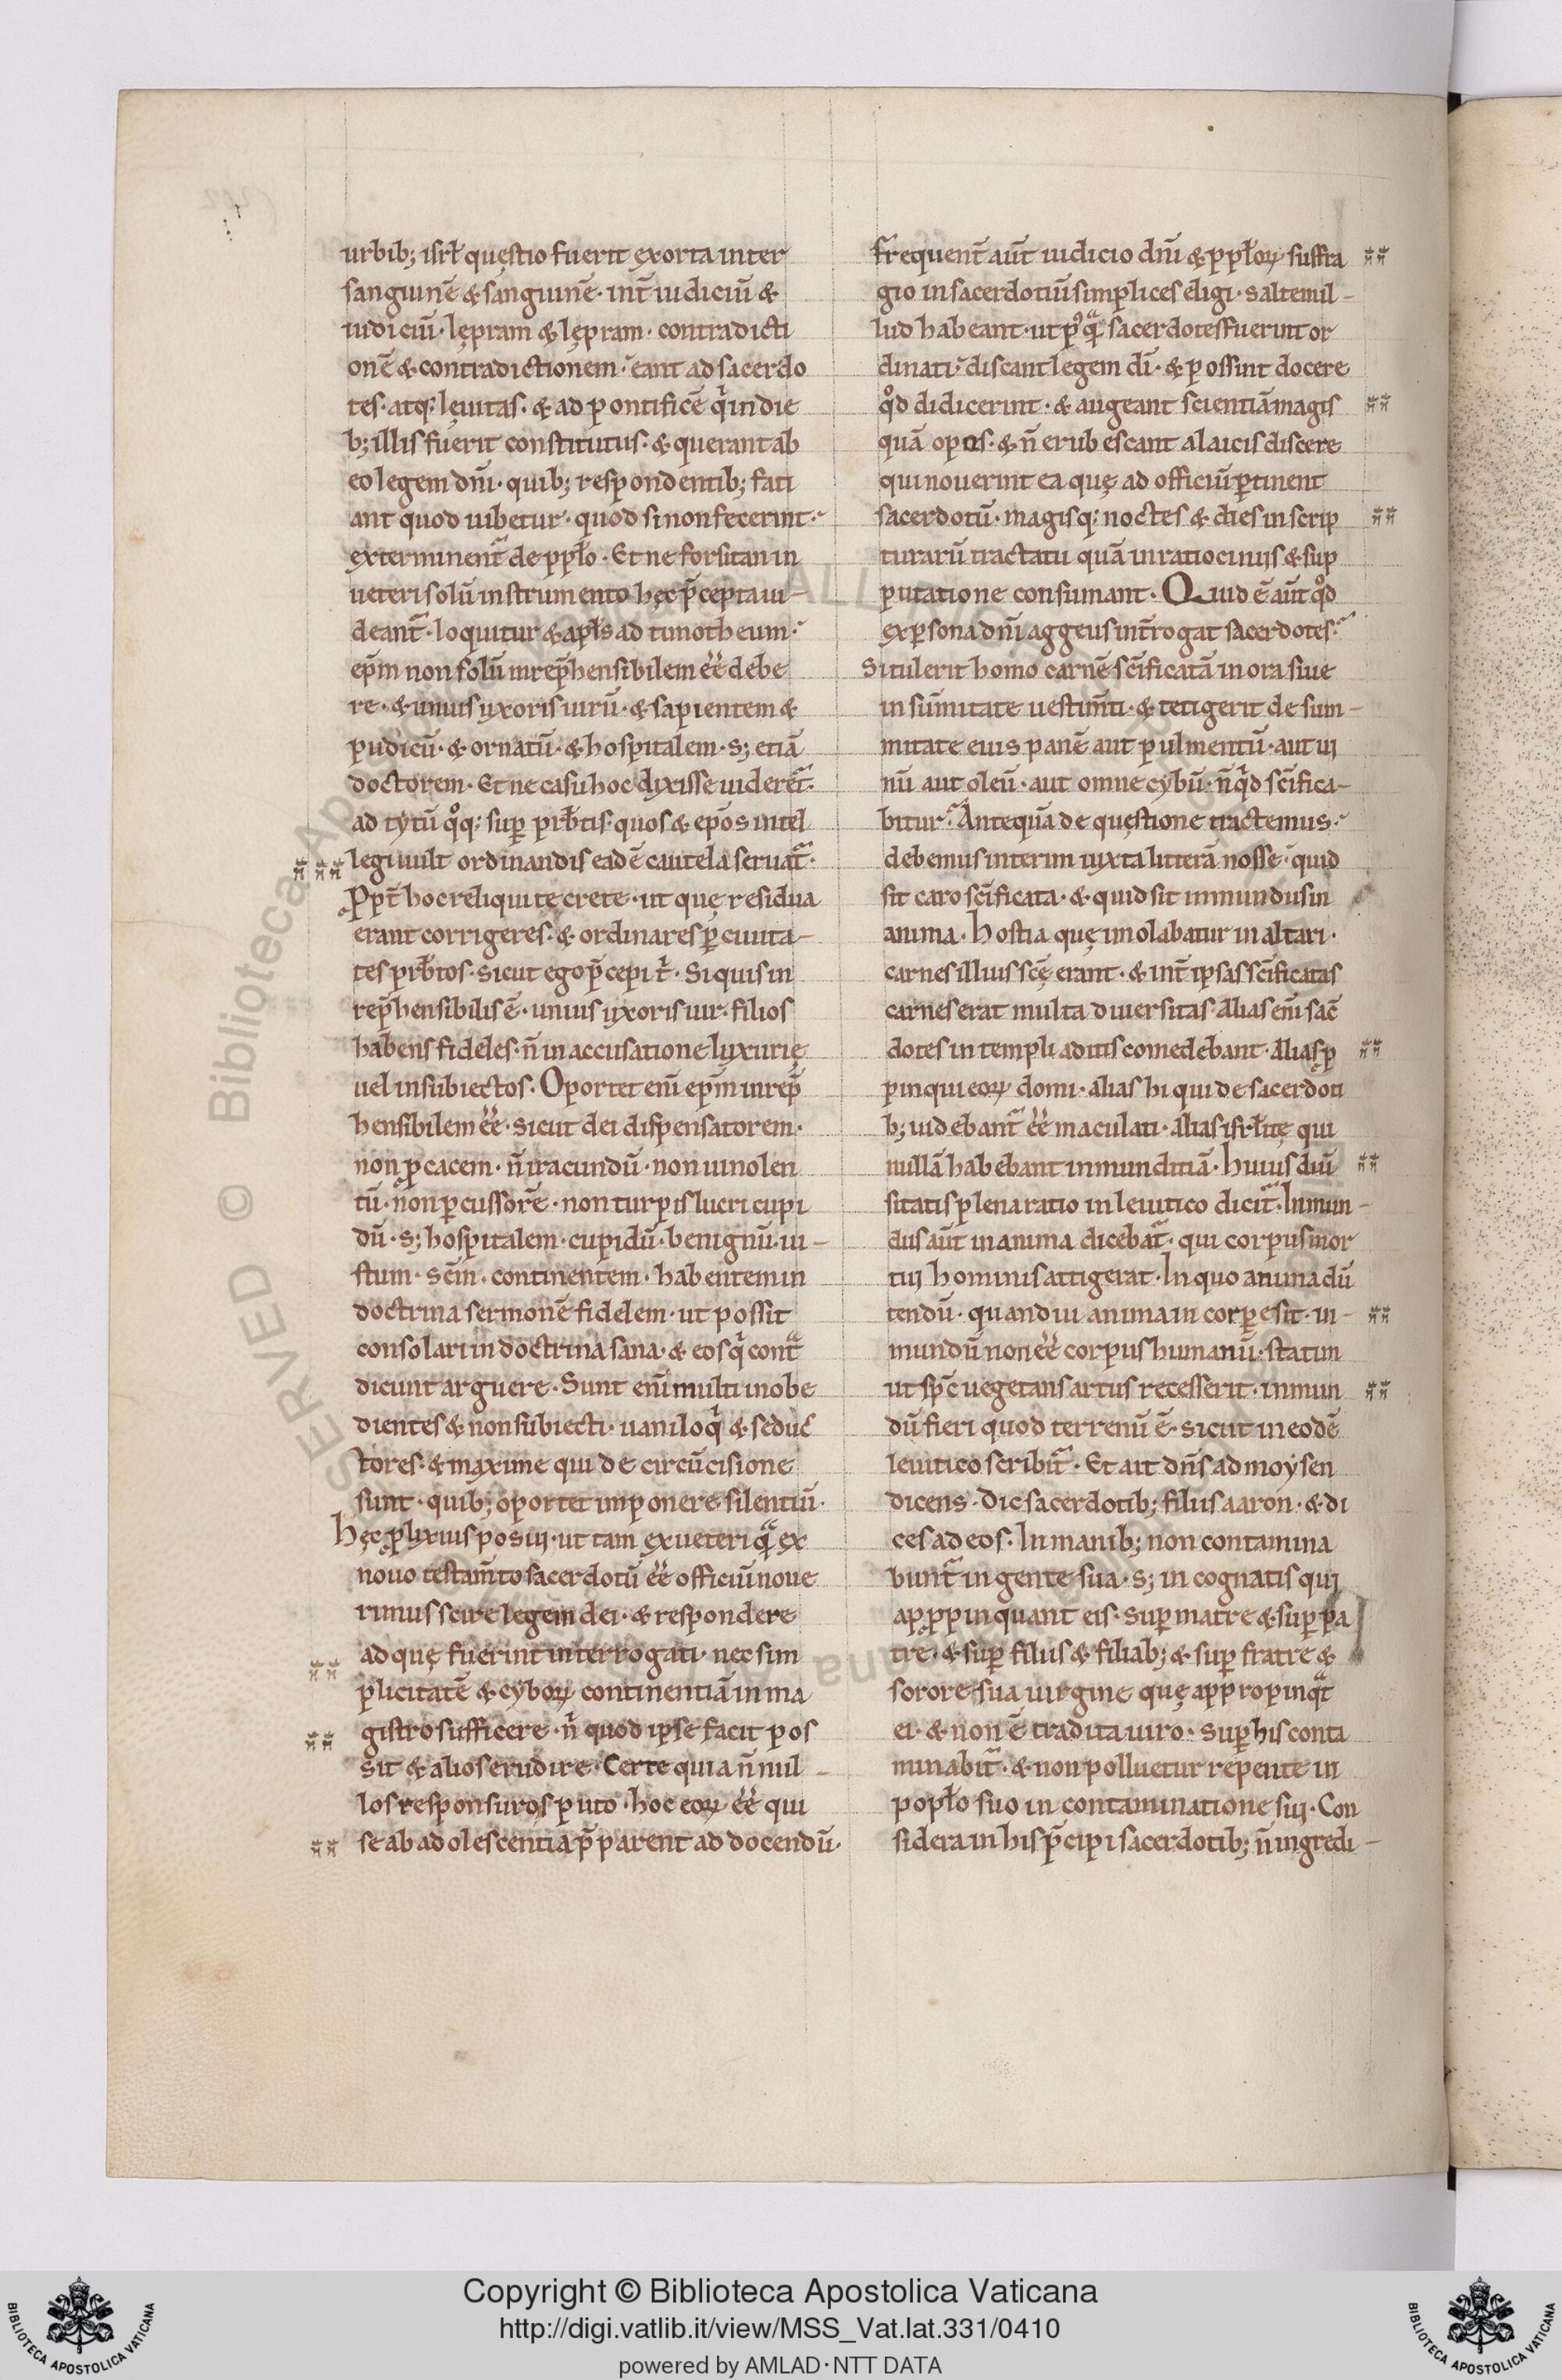 urbib; isrł quęstio fuerit exorta inter
sanguinē & sanguinē· int̄ iudiciū &
iudiciū· lępram & lępram· contradicti
onē & contradictionem· eant ad sacerdo
tes· atq; leuitas· & ad pontificē qͥ in die
b; illis fuerit constitutus· & querant ab
eo legem dn̄i· quib; respondentib; fati
ant quod iubetur· quod si non fecerint·
exterminent᷑ de ppło· Et ne forsitan in
ueteri solū instrumento hęc p̄cepta ui-
deant᷑· loquitur & apłs ad timotheum·
ep̄m non solū inrep̄hensibilem ēē debe
re· & unius uxoris uirū· & sapientem &
pudicū· & ornatū· & hospitalem· s; etiā
doctorem· Et ne casu hoc dixisse uideret᷑·
ad tytū qͦq; sup̄ prb̄tis· quos & ep̄os intel
legi uult ordinandis eadē cautela seruat᷑·
Ꝓpt̄ hoc reliqui te crete· ut quę residua
erant corrigeres· & ordinares ꝑ ciuita-
tes prb̄tos· sicut ego p̄cepi tͥ· Si quis in
rep̄hensibilis ē· unius uxoris uir· filios
habens fideles· n̄ in accusatione luxurię
uel insubiectos· Oportet eni̅ ep̄m inrep̄
hensibilem ēē· sicut dei dispensatorem·
non ꝓcacem· n̄ iracundū· non uinolen
tū· non ꝑcussorē· non turpis lucri cupi
dū· s; hospitalem· cupidū· benignū· iu-
stum· sc̄m· continentem· habentem in
doctrina sermonē fidelem· ut possit
consolari in doctrina sana· & eos qͥ contᷓ
dicunt arguere· Sunt eni̅ multi inobe
dientes & non subiecti· uaniloqͥ & seduc
tores· & maxime qui de circūcisione
sunt· quib; oportet imponere silentiū·
Hęc ꝓlixius posui· ut tam ex ueteri qᷓ ex
nouo testam̄to sacerdotū ēē officiū noue
rimus scire legem dei· & respondere
ad quę fuerint interrogati· nec sim
plicitatē & cyboꝝ continentiā in ma
gistro sufficere· nͥ quod ipse facit pos
sit & alios erudire· Certe quia n̄ nul-
los responsuros puto· hoc eoꝝ ēē qui
se ab adolescentia p̄parent ad docendū·
frequent᷑ aut̄ iudicio dn̄i & ppłoꝝ suffra
gio in sacerdotiū simplices eligi· saltem il-
lud habeant· ut pꝰqᷓ sacerdotes fuerint or
dinati· discant legem di̅· & possint docere
qͦd didicerint· & augeant scientiā magis
quā opes· & n̄ erubescant a laicis discere
qui nouerint ea quę ad officiū ꝑtinent
sacerdotū· magisq; noctes & dies in scrip
turarū tractatu quā in ratiociniis & sup
putatione consumant· Quid ē aut̄ qͦd
ex ꝑsona dn̄i aggeus int̄rogat sacerdotes·
Si tulerit homo carnē sc̄ificatā in ora siue
in sūmitate uestim̄ti· & tetigerit de sum-
mitate eius panē aut pulmentū· aut ui
nū aut oleū· aut omne cybū· n̄ qͥd sc̄ifica-
bitur· Antequā de quęstione tractemus·
debemus interim iuxta litterā nosse· quid
sit caro sc̄ificata· & quid sit inmundus in
anima· Hostia quę imolabatur in altari·
carnes illius sc̄ę erant· & int̄ ipsas sc̄ificatas
carnes erat multa diuersitas· Alias eni̅ sac̄
dotes in templi aditis comedebant· Alias ꝓ
pinqui eoꝝ domi· alias hi qui de sacerdoti
b; uidebant᷑ ēē maculati· alias isrłitę qui
nullā habebant inmunditiā· Huius diū
sitatis plena ratio in leuitico dicit᷑· Inmun-
dus aut̄ in anima dicebat᷑· qui corpus mor
tui hominis attigerat· In quo animaduͫ
tendū· quandiu anima in corpe sit· in-
mundū non ēē corpus humanū· statim
ut spc̄ uegetans artus recesserit· inmun
dū fieri quod terrenū ē· sicut in eodē
leuitico scribit᷑· Et ait dn̄s ad moysen
dicens· Dic sacerdotib; filiis aaron· & di
ces ad eos· In manib; non contamina
bunt᷑ in gente sua· s; in cognatis qui
apꝓpinquant eis· Sup̄ matre & sup̄ pa
tre· & sup̄ filiis & filiab; & sup̄ fratre &
sorore sua uirgine quę appropinqᷓt
ei· & non ē tradita uiro· Sup̄ his conta
minabit᷑· & non polluetur repente in
popło suo in contaminatione sui· Con
sidera in his p̄cipi sacerdotib; n̄ ingredi-
Copyright © Biblioteca Apostolica Vaticana
http://digi.vatlib.it/view/MSS_Vat.lat.331/0410
powered by AMLAD·NTT DATA
BIBLIOTECA APOSTOLICA VATICANA
BIBLIOTECA APOSTOLICA VATICANA